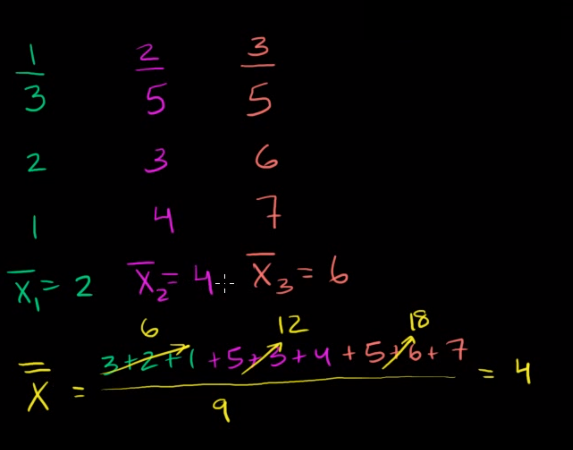 1 2 3
3 5 5
2 3 6
1 4 7
X̅₁ = 2 X̅₂ = 4 X̅₃ = 6
6 12 18
X̿ = 3+2+1 +5+3+4 +5+6+7 = 4
9